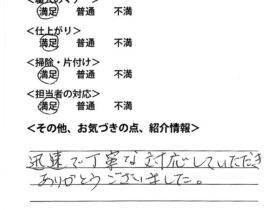 満足 普通 不満
<仕上がり>
満足 普通 不満
<掃除・片付け>
満足 普通 不満
<担当者の対応>
満足 普通 不満
<その他、お気づきの点、紹介情報>
迅速で丁寧な対応していただき
ありがとうございました。